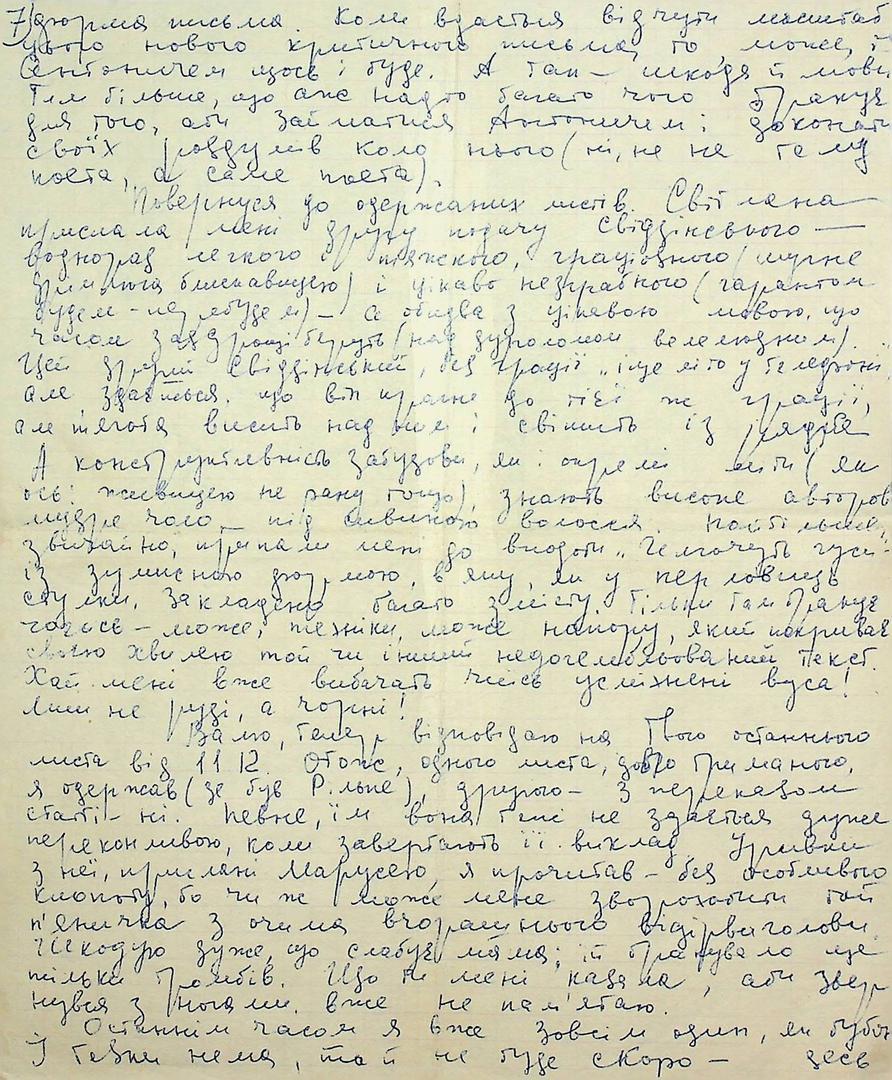 7) форма письма. Коли вдасться відчути масштаб
цього нового критичного письма, то може, із
Антоничем щось і буде. А так — шкода й мови
Тим більше, що аж надто багато чого бракує
для того, аби займатися Антоничем і доконати
своїх роздумів коло нього (ні, не не тему
поета, а саме поета).
Повернуся до одержаних листів. Світлана
прислала мені другу подачу Свідзінського —
водночас легкого і тяжкого, граціозного (шугне
блискавицею) і цікаво незграбного (гарантом
будем — не збудем) — а обидва з цікавою мовою, що
часом заздрощі беруть (над дуроломом велелюдним).
Цей другий Свідзінський, без грації „іще літо у телефоні",
але здається, що він прагне до тієї ж грації,
але тягота висить над ним і свінить із рядків
А конструктивність забудови, як і окремі (як
ось: живицею не рану тощо), знають високе авторове
мудре чоло під сивиною волосся. Найбільше,
звичайно, припали мені до вподоби „Гелгочуть гуси"
із зумисною формою, в яку, як у перловиць
стулки, закладено багато змісту. Тільки там бракує
чогось — може, техніки, може напору, який покриває
своєю хвилею той чи інший недогембльований текст.
Хай мені вже вибачать чиїсь усміхнені вуса!
Лиш не руді, а чорні!
Валю, тепер відповідаю на Твого останнього
листа від 11 12 Отож, одного листа, добро триманого,
я одержав (це був Рільке), другого — з переказом
статті — ні. Певне, їм вона теж не здається дуже
переконливою, коли завертають її виклад. Уривки
з неї, прислані Марусею, я прочитав — без особливого
клопоту, бо чи ж може мене зворохобити той
п'яничка з очима вчорашнього відірвиголови.
Шкодую дуже, що слабує мама; їй бракувало ще
тільки тромбів. Що ти мені казала, аби звер
нувся з ногами, вже не пам'ятаю.
Останнім часом я вже зовсім один, як бубон
І Гевки нема, та й не буде скоро — десь